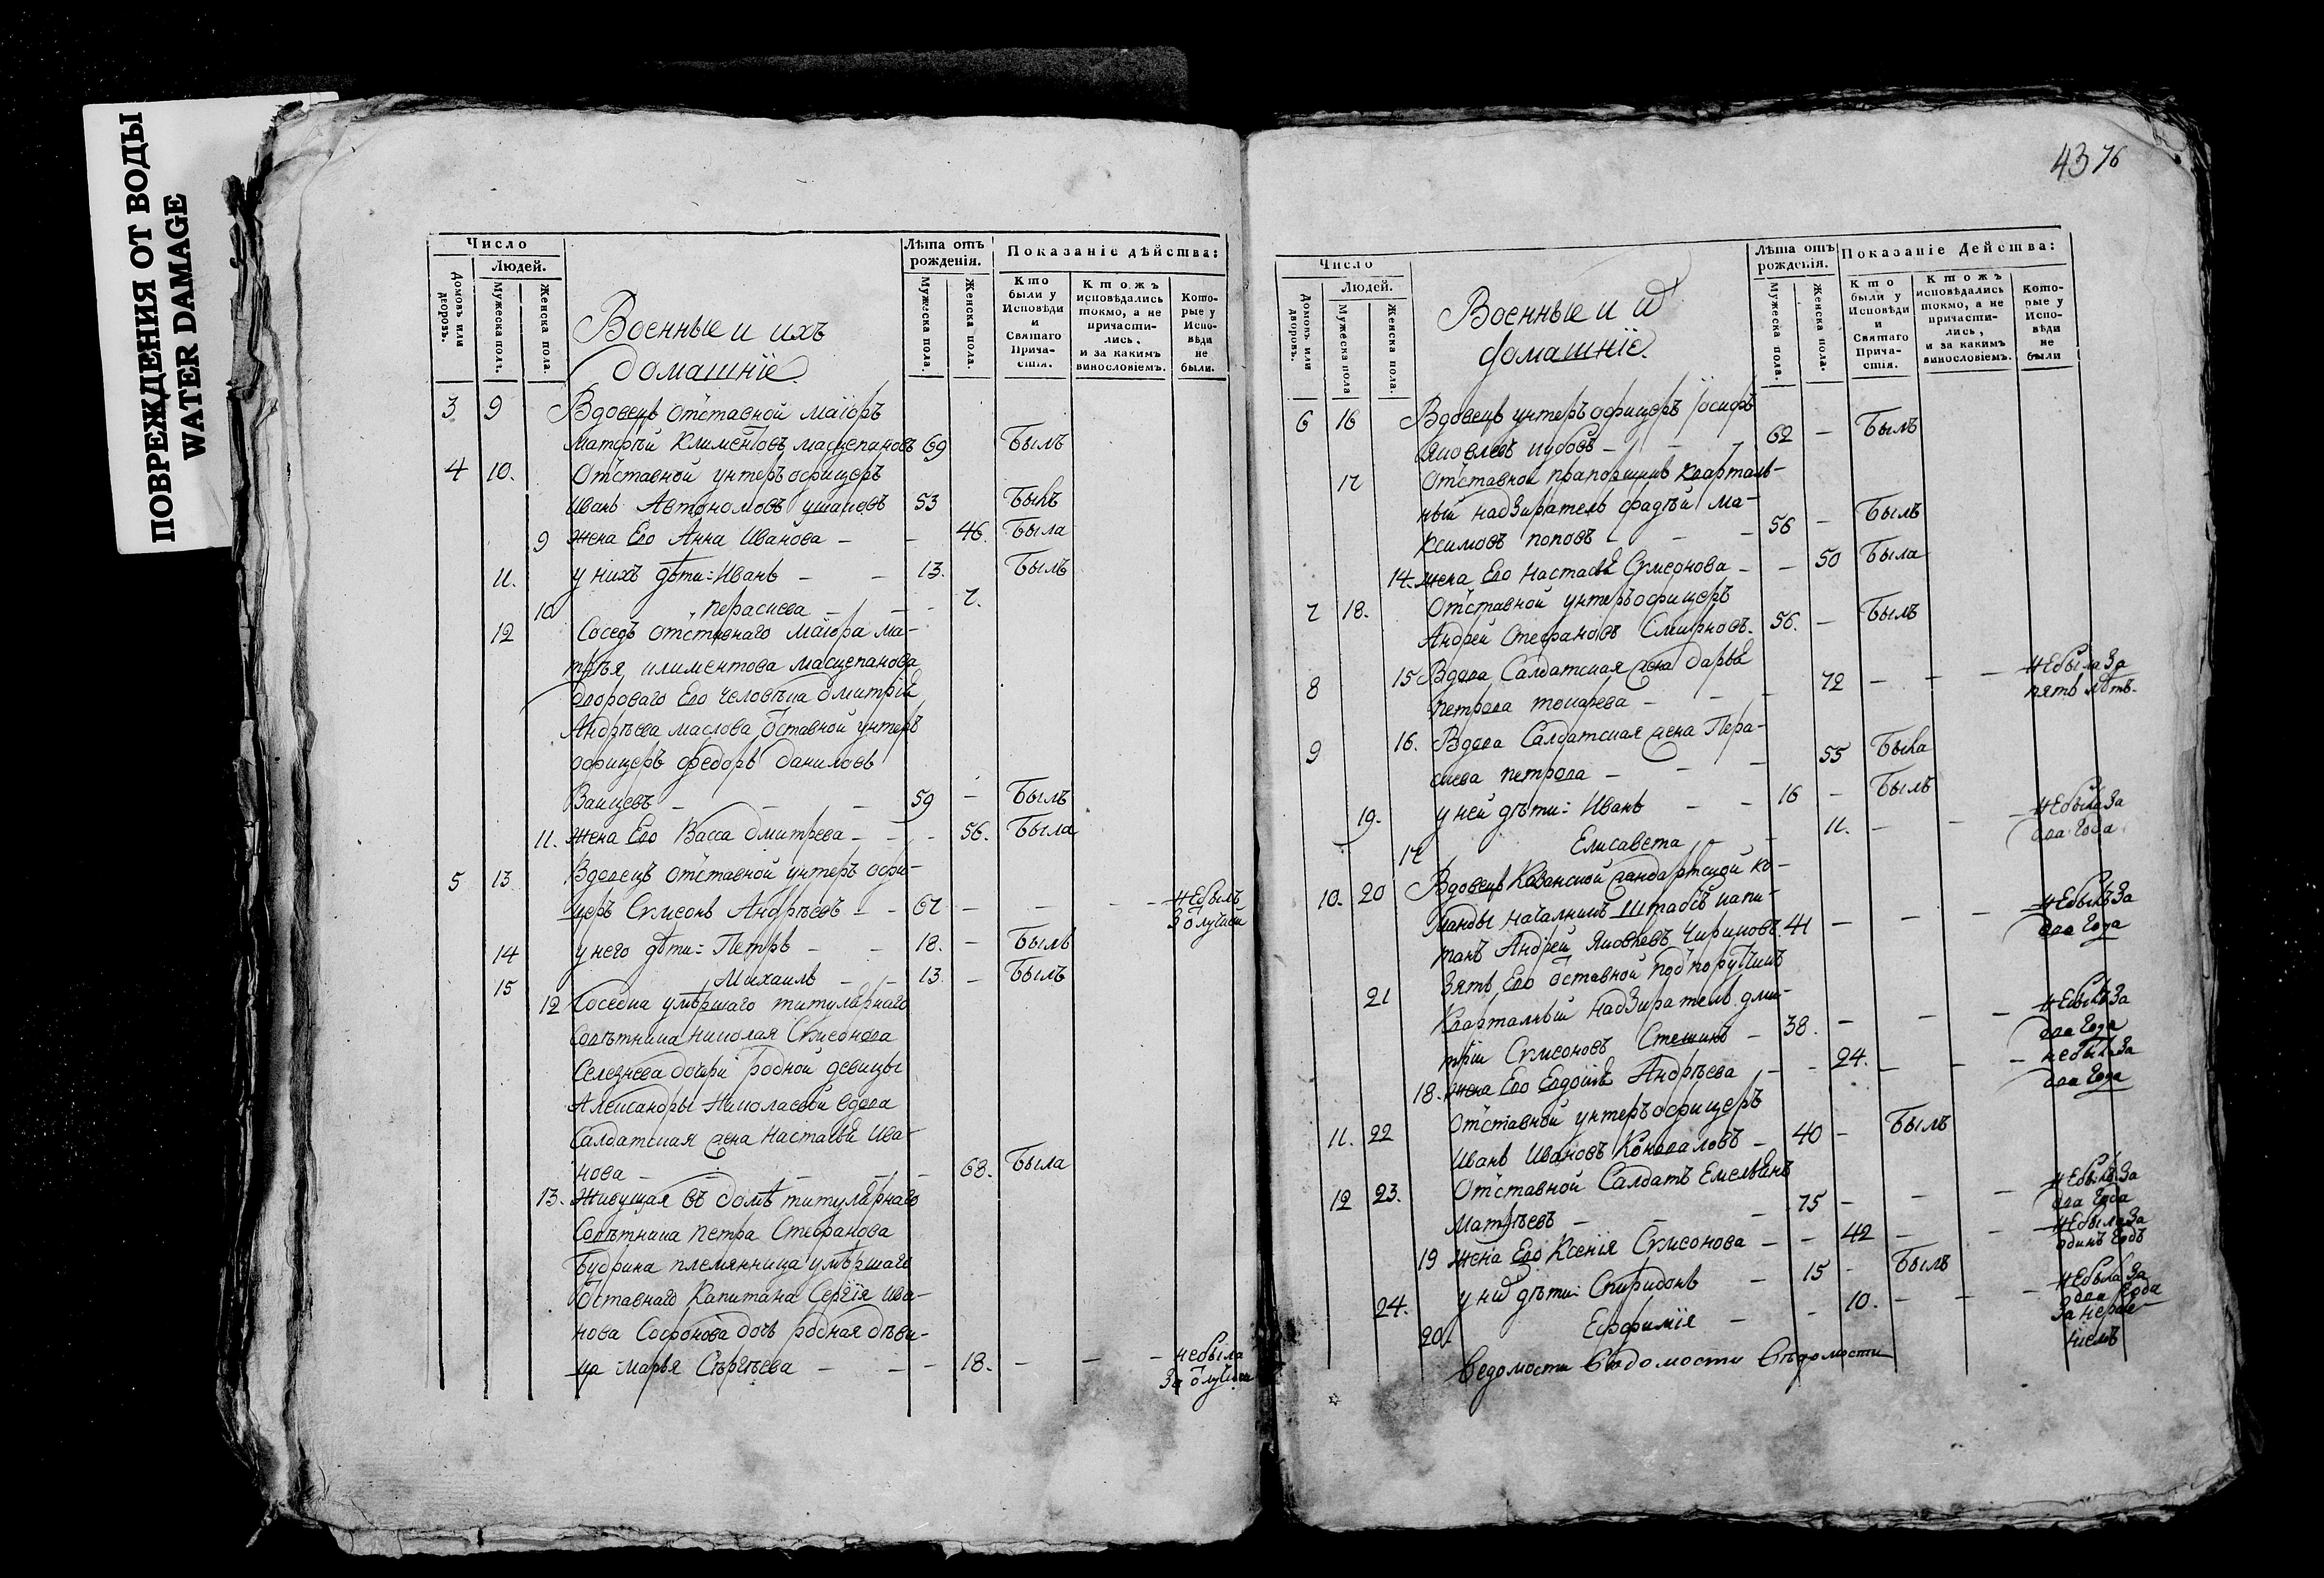 ПОВРЕЖДЕНИЯ ОТ ВОДЫ
WATER DAMAGE
Число
Людей.
Домовъ или дворовъ.
Мужеска пола.
Женска пола.
Военные и ихъ
домашнїе
Лѣта отъ рожденія.
Мужеска пола.
Женска пола.
Показаніе дѣйства:
Кто были у Исповѣди и Святаго Прича-стія.
Ктожъ исповѣдались токмо, а не причасти-лись, и за какимъ винословіемъ.
Кото-рые у Испо-вѣди не были.
3 9 Вдовецъ отставной маїоръ
Матфѣй Климентовъ масцепановъ 69 Былъ
4 10. Отставной унтеръ офицеръ
Иванъ Автономовъ ушаковъ 53 Былъ
9 жена Его Анна Иванова - - 46. Была
11. у нихъ дѣти: Иванъ - - 13. Былъ
10 Параскева - - - 7.
12 Соседъ отставнаго маїора ма-
тфѣя климентова масцепанова
двороваго Его человѣка дмитрїя
Андрѣева маслова, отставной унтеръ
офицеръ федоръ даниловъ
- - - 59 - Былъ
11. жена Его Васса дмитрева - - - 56. Была
5 13 Вдовецъ отставной унтеръ офи-
церъ Симеонъ Андрѣевъ - - 67 - - - - небылъ
За отлучкой
14 у него дѣти: Петръ - - 18. - Былъ
15 Михаилъ - - 13 - Былъ
12 Соседка умѣршаго титулярнаго
Совѣтника николая Симеонова
Селезнева дочери родной девицы
Александры Николаевой вдова
Салдатская жена Настасья Ива-
нова - - - - 68. Была
13. Живущая въ домѣ титулярнаго
Совѣтника Петра Стефанова
Будрина племянница умѣршаго
отставнаго Капитана Сергїя Ива-
нова Софонова дочь родная дѣви-
ца марья Сѣргѣева - - - 18. - - - небыла
За отлучкой
43 76
Число
Людей.
Домовъ или дворовъ.
Мужеска пола
Женска пола.
Военные и их
домашнїе.
Лѣта отъ рожденія.
Мужеска пола.
Женска пола.
Показаніе Дейсшва:
Кто были у Исповѣди и Святаго Прича-стія.
Ктожъ исповѣдались токмо, а не причасти-лись, и за какимъ винословіемъ.
Кото-рые у Испо-вѣди не были
6 16 Вдовецъ унтеръ офицеръ Іосифъ
Яковлевъ - - - 62 - Былъ
17 Отставной прапорщикъ кварталь-
ный надзиратель фадѣй Ма-
ксимовъ поповъ - - - 56 - Былъ
14. жена Его Настасья Симеонова - - 50 Была
7 18. Отставной унтеръ офицеръ
Андрей Стефановъ Смирновъ. 56. - Былъ
8 15 Вдова Салдатская жена дарья
петрова токарева - - - 72 - - - небыла За
пять лѣтъ.
9 16. Вдова Салдатская жена Пера-
скева петрова - - - 55 Была
19. у ней дѣти: Иванъ - - 16 - Былъ
17 Елисавета - - 11. - - - небыла За
два года
10. 20 Вдовецъ Казанской жандармской ко-
манды начальникъ Штабсъ капи-
танъ Андрей Яковлевъ Чириковъ. 41 - - - - небылъ За
два года
21 Зять Его отставной подпоручикъ
Квартальный надзиратель дми-
трїй Симеоновъ - 38. - - - небылъ За
два года
18. жена Его Евдокия Андрѣева - - 24. - - - небыла За
два года
11. 22 Отставной унтеръ офицеръ
Иванъ Ивановъ Коноваловъ - 40 - Былъ
12 23. Отставной Салдатъ Емельянъ
Матфѣевъ - - - 75 - - - небылъ За
два года
19 жена Его Ксенїя Симеонова - - 42 - - небыла За
одинъ годъ
24. у них дѣти: Спиридонъ - 15 - Былъ
20. Евфимїя - - 10. - - - небыла За
два года
Ведомости Ведомости Вѣдомости